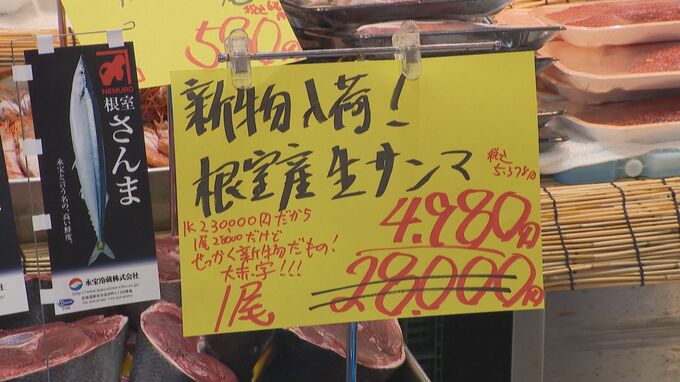 税込
580円
NEMURO
根室
さんま
永宝冷蔵株式会社
新物入荷!
根室産生サンマ
税込
5.378円
1K 230000円だから
1尾28000だけど
せっかく新物だもの!
大赤字!!!
4.980円
28.000円
1尾